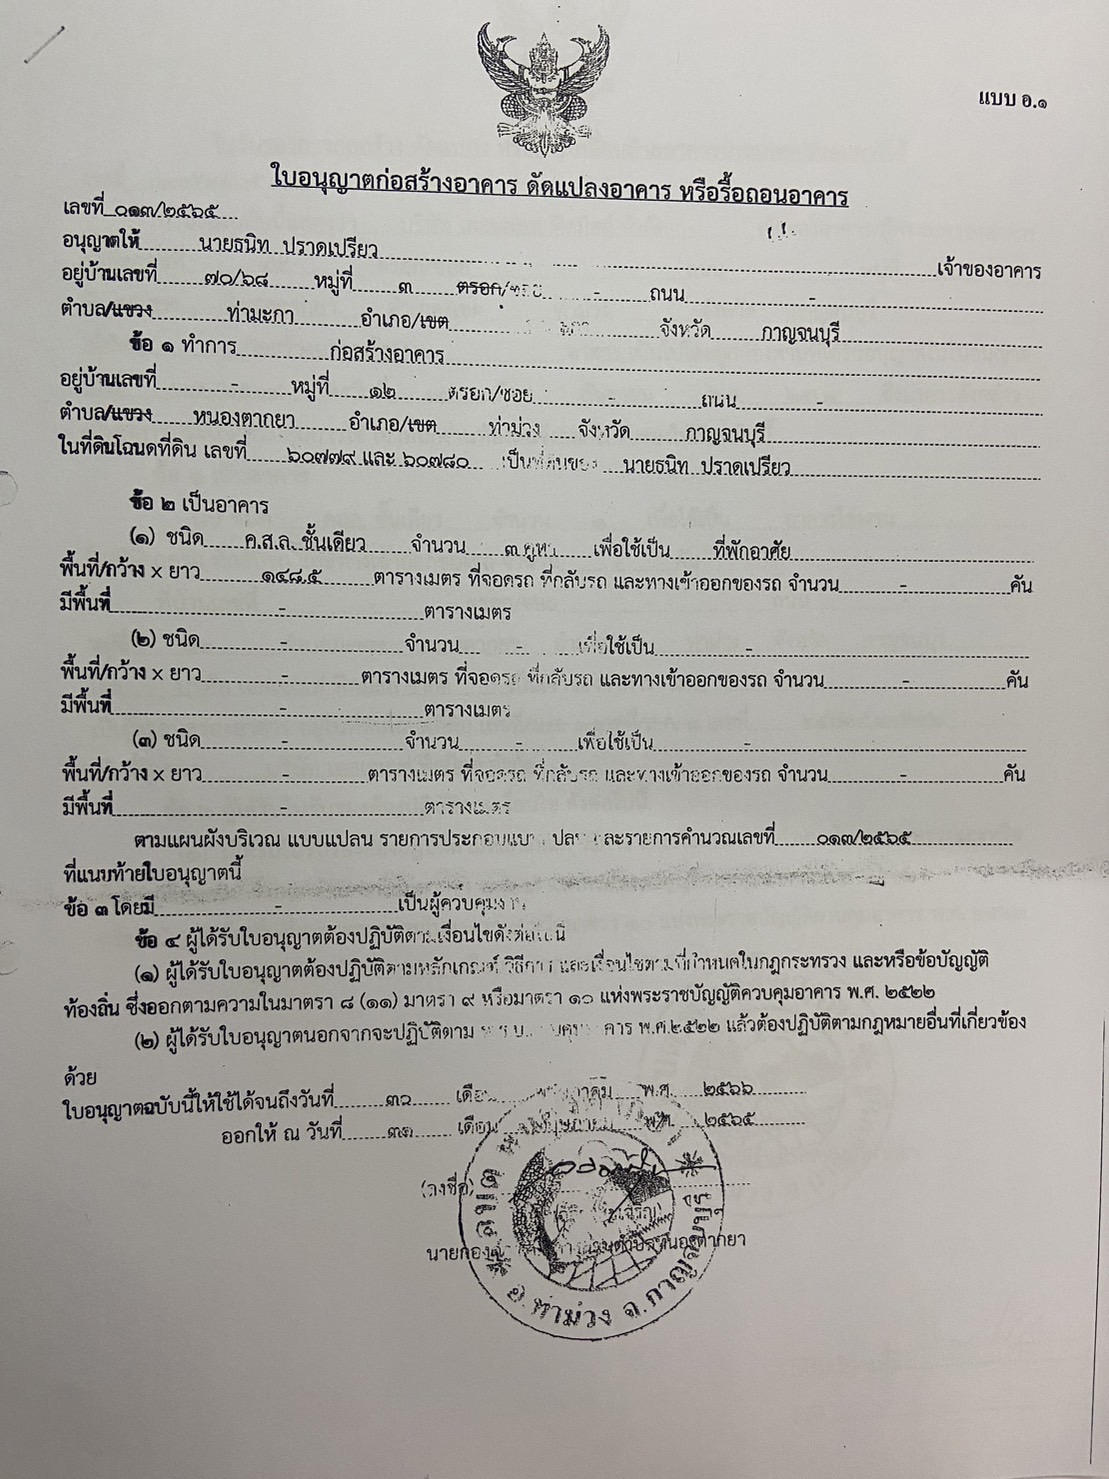 แบบ อ.๑
ใบอนุญาตก่อสร้างอาคาร ดัดแปลงอาคาร หรือรื้อถอนอาคาร
เลขที่ ๐๑๓/๒๕๖๕
อนุญาตให้ นายธนิท ปราดเปรียว เจ้าของอาคาร
อยู่บ้านเลขที่ ๗๐/๖๘ หมู่ที่ ๓ ตรอก/ซอย - ถนน -
ตำบล/แขวง ท่ามะกา อำเภอ/เขต จังหวัด กาญจนบุรี
ข้อ ๑ ทำการ ก่อสร้างอาคาร
อยู่บ้านเลขที่ - หมู่ที่ ๑๒ ตรอก/ซอย - ถนน -
ตำบล/แขวง หนองตากยา อำเภอ/เขต ท่าม่วง จังหวัด กาญจนบุรี
ในที่ดินโฉนดที่ดิน เลขที่ ๖๐๗๗๙ และ ๖๐๗๘๐ เป็นที่ดินของ นายธนิท ปราดเปรียว
ข้อ ๒ เป็นอาคาร
(๑) ชนิด ค.ส.ล. ชั้นเดียว จำนวน ๓ คูหา เพื่อใช้เป็น ที่พักอาศัย
พื้นที่/กว้าง x ยาว ๑๔๘.๕ ตารางเมตร ที่จอดรถ ที่กลับรถ และทางเข้าออกของรถ จำนวน - คัน
มีพื้นที่ - ตารางเมตร
(๒) ชนิด - จำนวน - เพื่อใช้เป็น -
พื้นที่/กว้าง x ยาว - ตารางเมตร ที่จอดรถ ที่กลับรถ และทางเข้าออกของรถ จำนวน - คัน
มีพื้นที่ - ตารางเมตร
(๓) ชนิด - จำนวน - เพื่อใช้เป็น -
พื้นที่/กว้าง x ยาว - ตารางเมตร ที่จอดรถ ที่กลับรถ และทางเข้าออกของรถ จำนวน - คัน
มีพื้นที่ - ตารางเมตร
ตามแผนผังบริเวณ แบบแปลน รายการประกอบแบบแปลน และรายการคำนวณเลขที่ ๐๑๓/๒๕๖๕
ที่แนบท้ายใบอนุญาตนี้
ข้อ ๓ โดยมี - เป็นผู้ควบคุมงาน
ข้อ ๔ ผู้ได้รับใบอนุญาตต้องปฏิบัติตามเงื่อนไขดังต่อไปนี้
(๑) ผู้ได้รับใบอนุญาตต้องปฏิบัติตามหลักเกณฑ์ วิธีการ และเงื่อนไขตามที่กำหนดในกฎกระทรวง และหรือข้อบัญญัติ
ท้องถิ่น ซึ่งออกตามความในมาตรา ๘ (๑๑) มาตรา ๙ หรือมาตรา ๑๐ แห่งพระราชบัญญัติควบคุมอาคาร พ.ศ. ๒๕๒๒
(๒) ผู้ได้รับใบอนุญาตนอกจากจะปฏิบัติตาม พ.ร.บ.ควบคุมอาคาร พ.ศ.๒๕๒๒ แล้วต้องปฏิบัติตามกฎหมายอื่นที่เกี่ยวข้อง
ด้วย
ใบอนุญาตฉบับนี้ให้ใช้ได้จนถึงวันที่ ๓๐ เดือน พ.ศ. ๒๕๖๖
ออกให้ ณ วันที่ ๓๑ เดือน พ.ศ. ๒๕๖๕
(ลงชื่อ)
นายกองค์การบริหารส่วนตำบลหนองตากยา
อ.ท่าม่วง จ.กาญจนบุรี